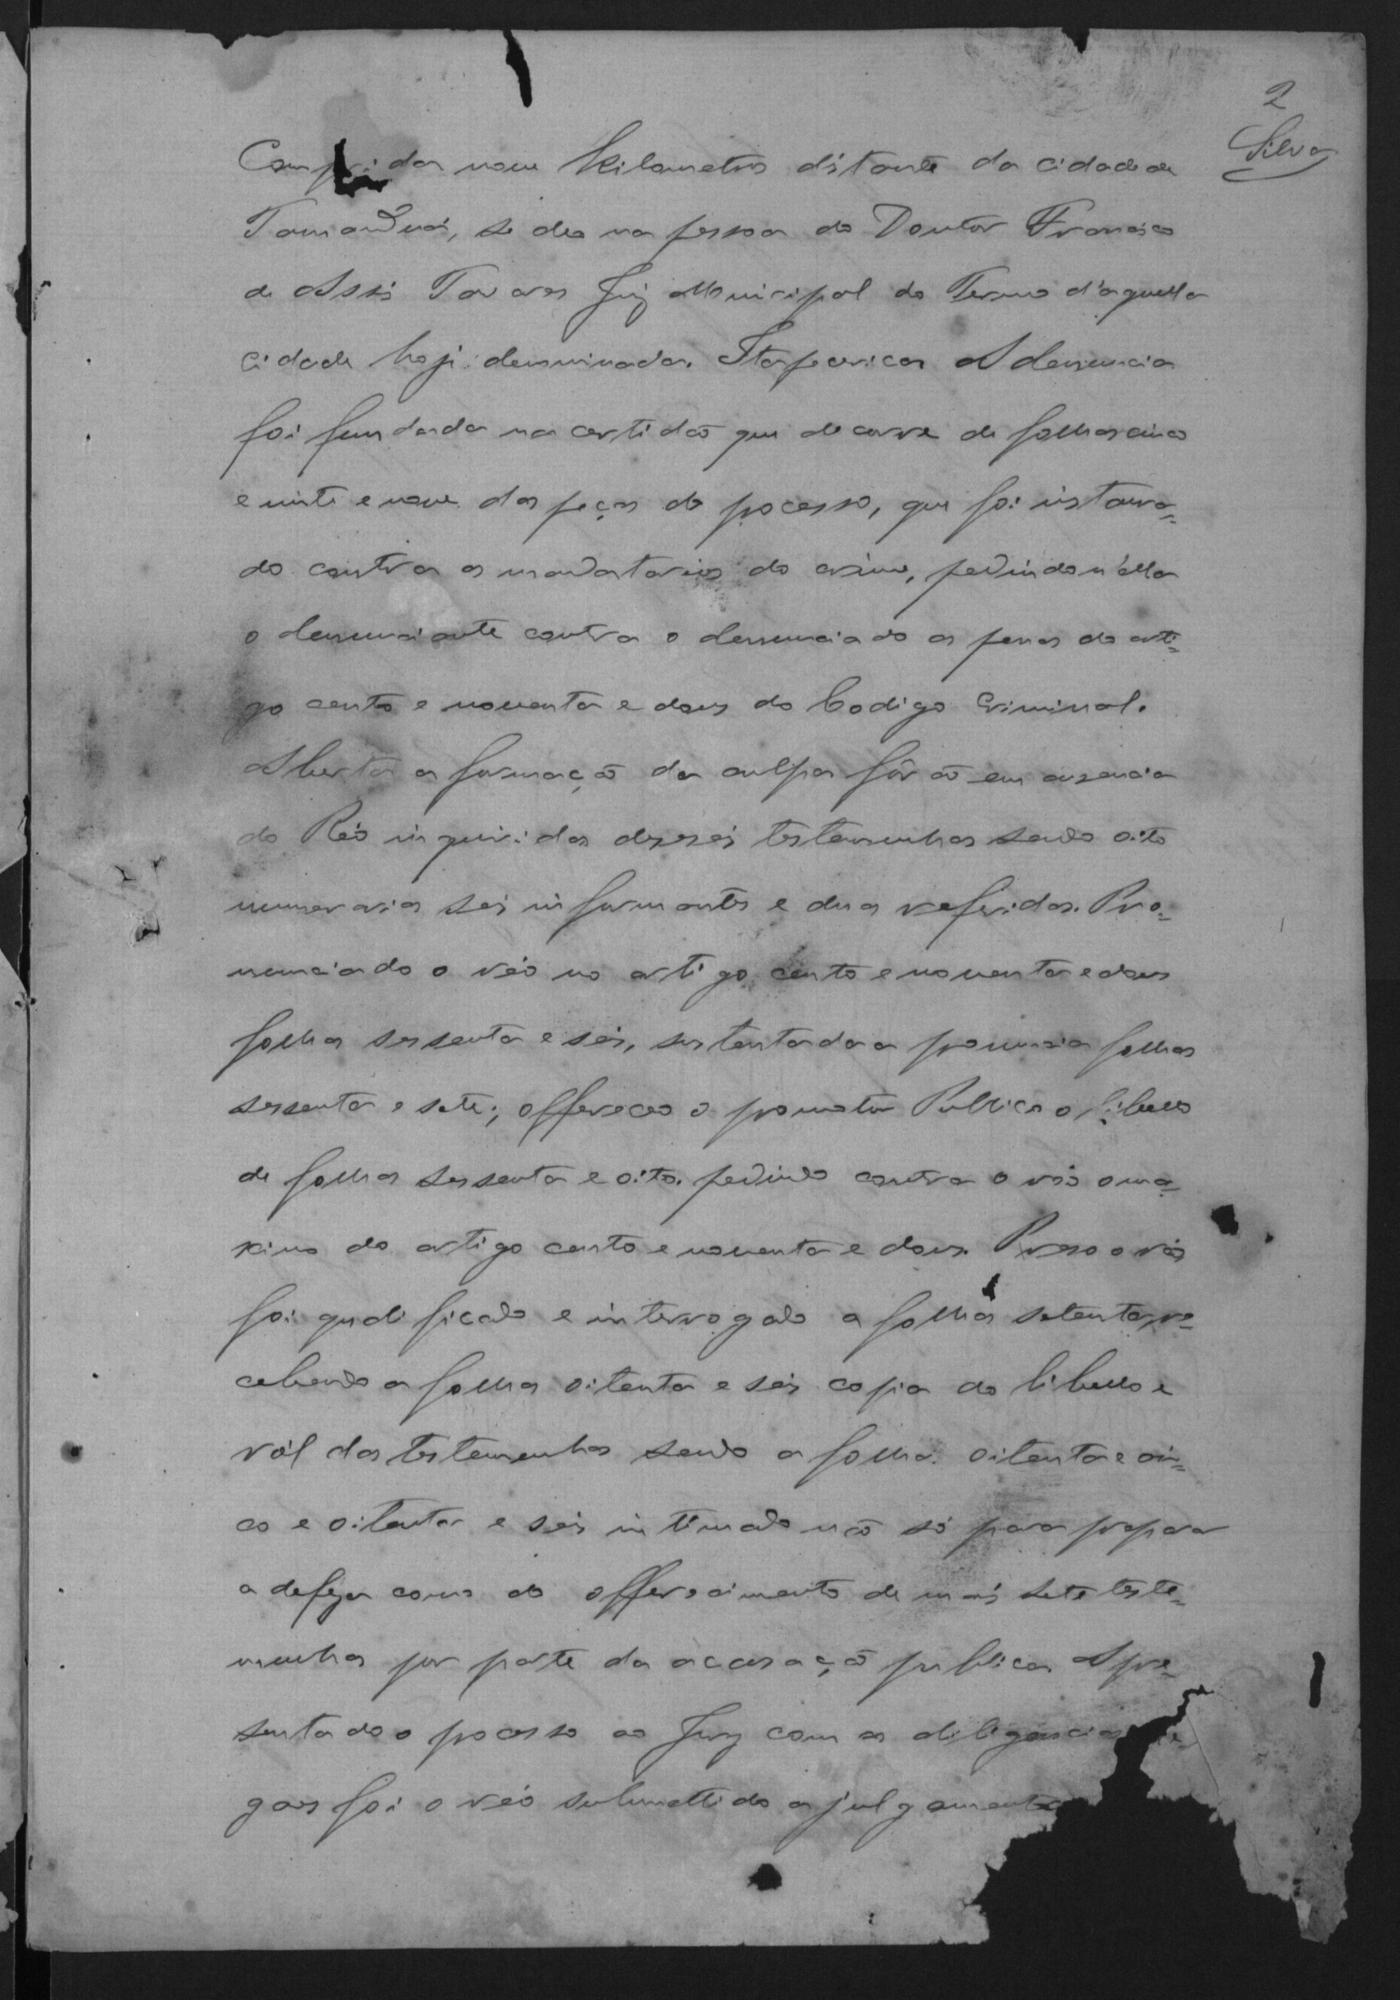 2
Silva
Comprida nove Kilometros distante da cidade de
Tamanduá, se deo na pessoa do Doutor Francisco
de Assis Tavares Juiz Municipal do Termo d'aquella
cidade hoje denominada Itapecerica. A denuncia
foi fundada na certidão que decorre de folhas cinco
e vinte e nove das peças do pocesso, que foi instaura=
do contra os mandatarios do crime, pedindo n'ella
o denunciante contra o denunciado as penas do arti=
go cento e noventa e dous do Codigo Criminal.
Aberta a formação da culpa fôrão em ausencia
do Réo inquiridas deseseis testemunhas sendo oito
numerarias seis informantes e duas referidas. Pro=
nunciado o réo no artigo cento e noventa e dous
folhas sessenta e seis, sustentada a pronuncia folhas
sessenta e sete; offereceo o promotor Publico o libello
de folhas sessenta e oito. pedindo contra o réo o ma=
ximo do artigo cento e noventa e dous. Preso o réo
foi qualificado e interrogado a folhas setenta, re=
cebendo a folhas oitenta e seis copia do libello e
ról das testemunhas sendo a folhas oitenta e cin=
co e oitenta e seis intimado não só para preparar
a defeza como do offerecimento de mais sete teste=
munhas por parte da accusação publica. Apre=
sentado o pocesso ao Jury com as diligencias le
gaes foi o réo submettido a julgamento